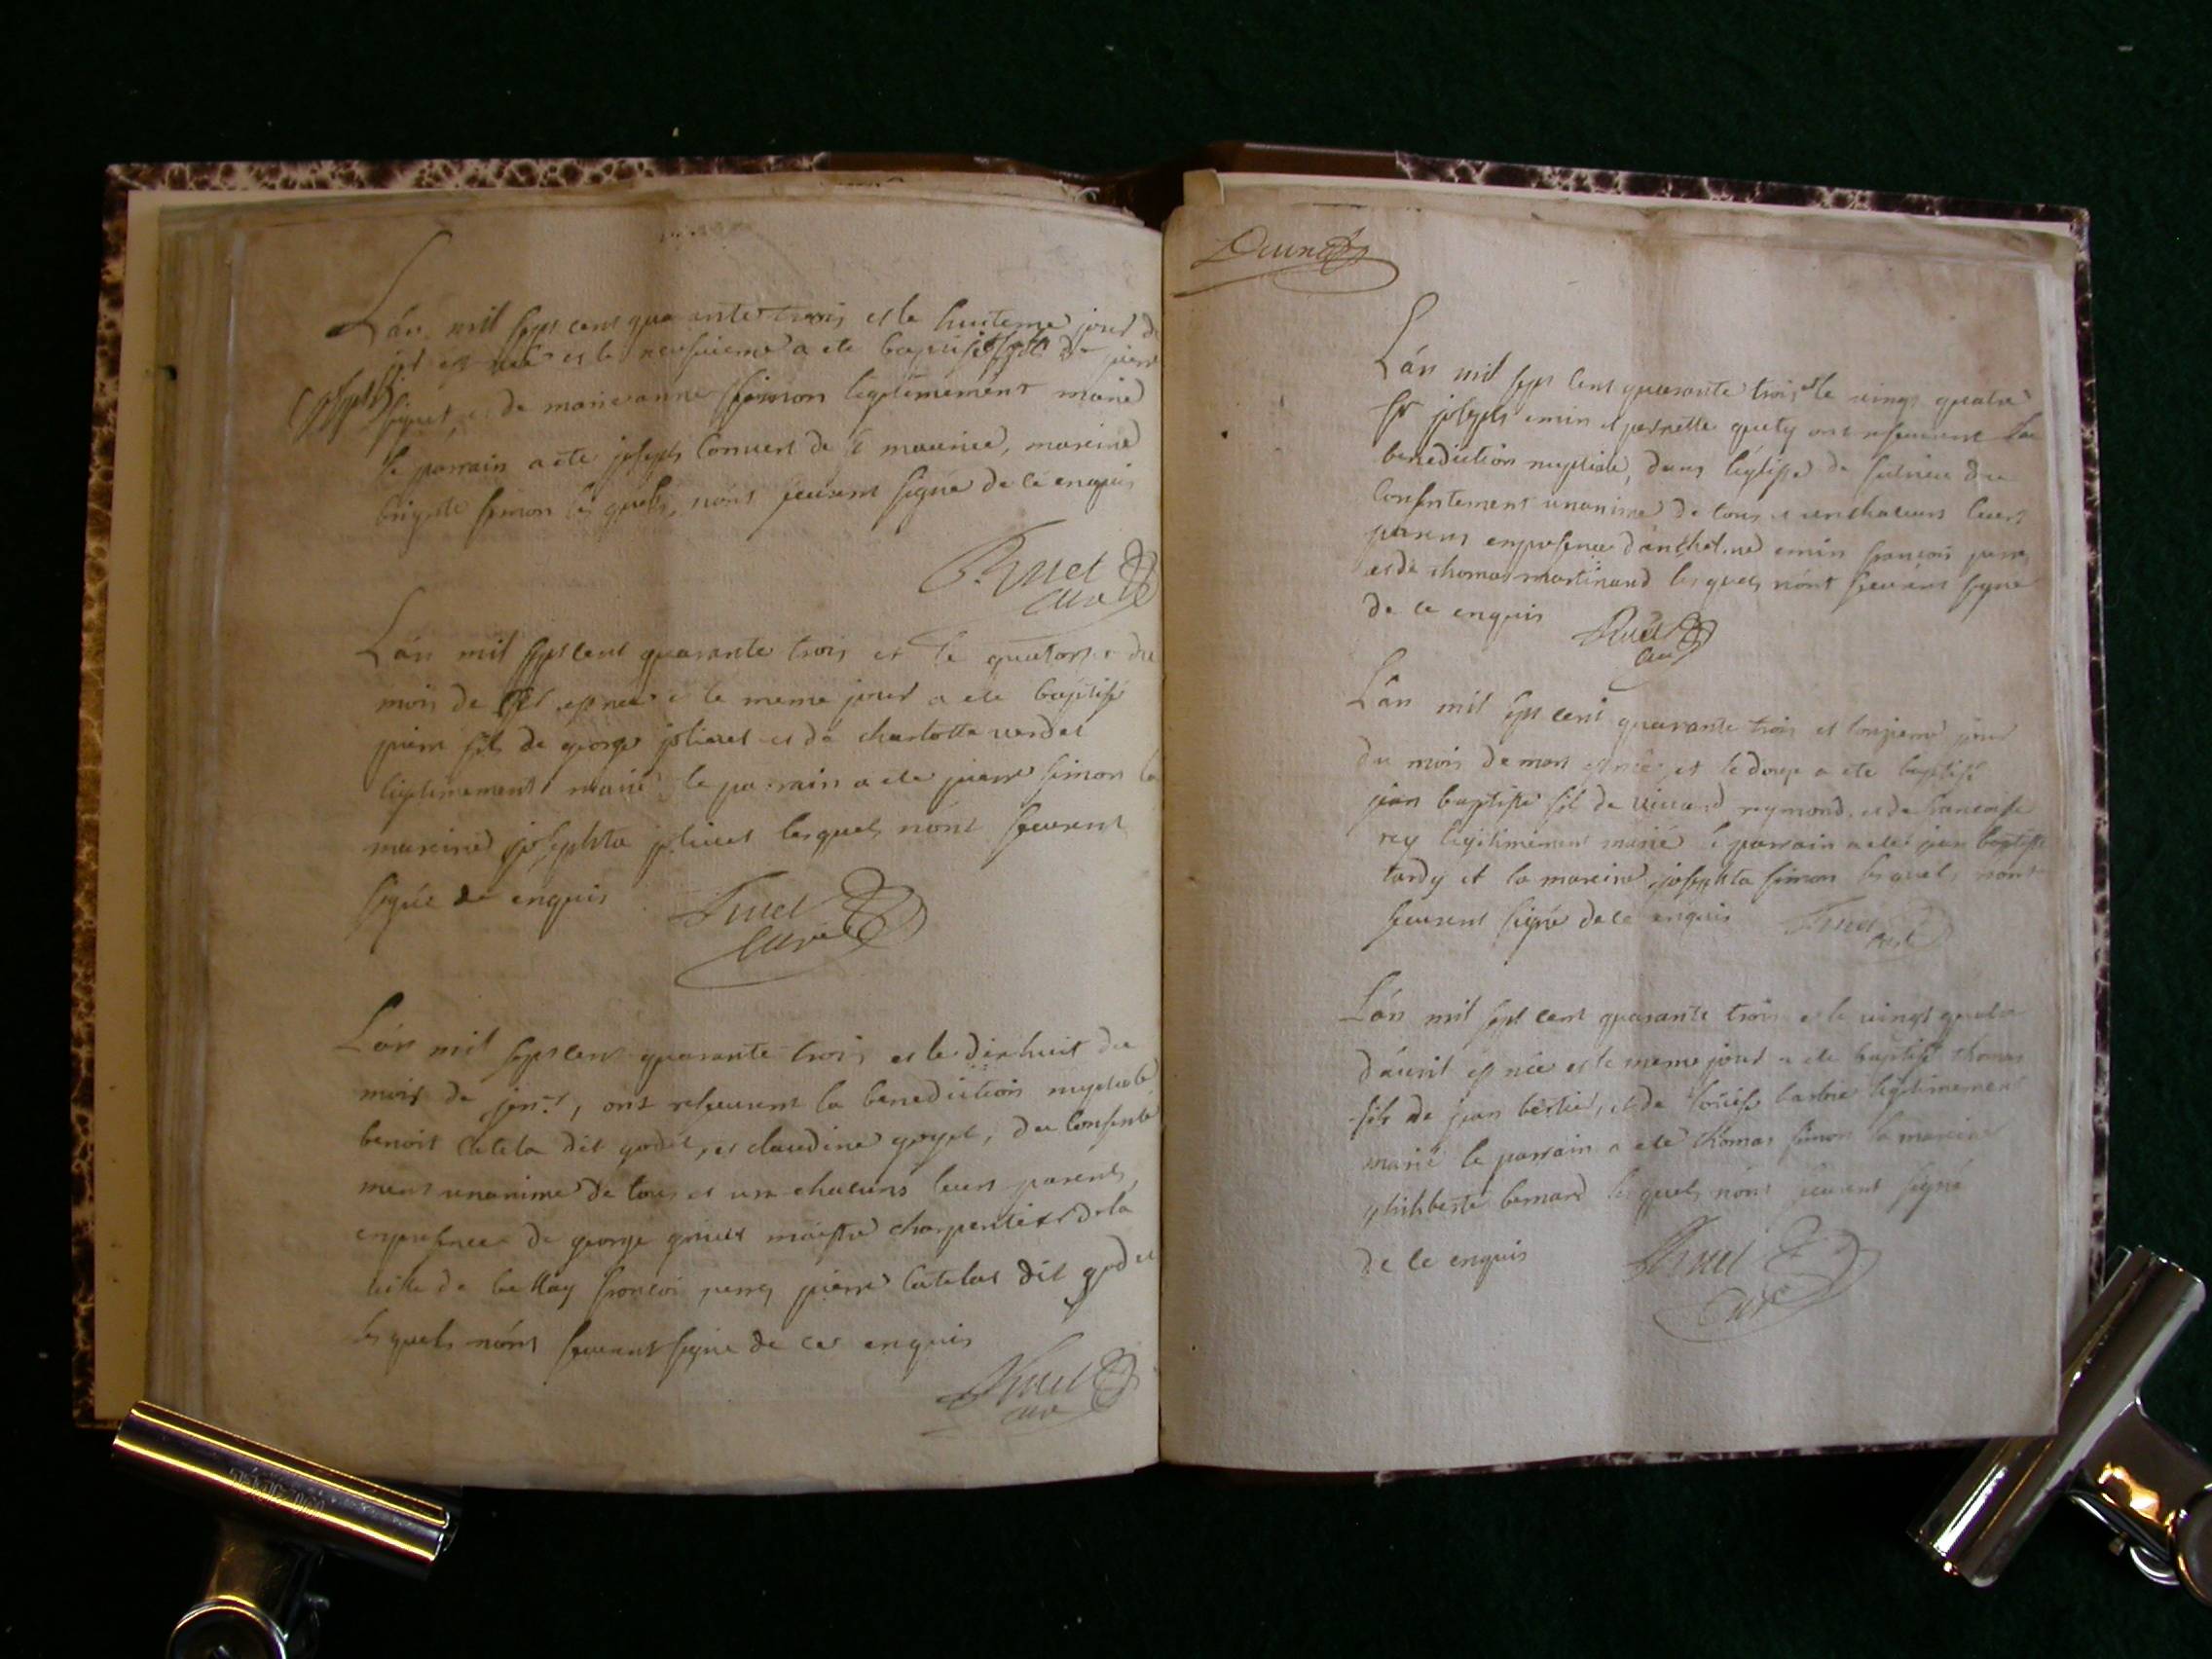 Lán mil sept cent quarante trois et le huitieme jour d
est née et le neufuieme a ete baptisé de pierr
et de marie anne simon legitimement marié
le parrain a ete joseph convert de st maurice, mareine
brigitte simon les quels, nónt sceurent signé de ce enquis
Ruet
curé
Lán mil sept cent quarante trois et le quatorse du
mois de est née et le meme jour a ete baptisé
pierre fils de george joliuet et de charlotte uerdet
legitimement marié le parrain a ete pierre simon la
mareine josephta joliuet lesquels nónt sceurent
signé de enquis
Ruet
curé
Lán mil sept cent quarante trois et le dixhuit du
mois de jan.r, ont resceurent la benediction nuptiale
benoit catela dit godet, et claudine goyet, du consente
ment unanime de tous et un chacuns leurs parents,
enpresence de george maistre charpentier de la
uille de bellay francois perret pierre catelas dit godet
les quels nónt sceurent signé de ces enquis
Ruet
curé
Lán mil sept cent quarante trois et le uingt quatre
joseph emin et pernette ont resceurent la
benediction nuptiale, dans léglise de du
consentement unanime de tous et unchacuns leurs
parens enpresence dánthelme emin francois
et de thomas martinand les quels nónt sceurent signé
de ce enquis
Ruet
curé
Lán mil sept cent quarante trois et lonzieme jour
du mois de mars est née, et le douze a ete baptisé
jean baptiste fils de reymond, et de francoise
rey legitimement marié le parrain a eté jean baptiste
tardy et la mareine josephta simon lesquels nont
sceurent signé de ce enquis
Ruet
curé
Lán mil sept cent quarante trois et le uingt quatre
dáuril est née et le meme jour a ete baptisé thomas
fils de jean bertier, et de loüise legitimement
marié le parrain a ete thomas simon la mareine
philiberte bernard les quels nónt sceurent signé
de ce enquis
Ruet
curé